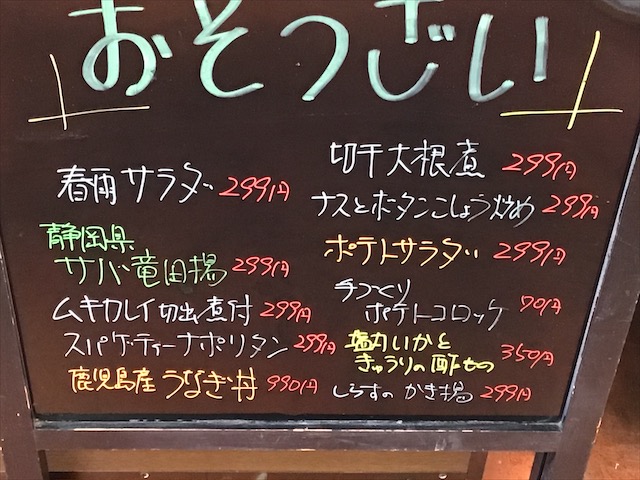 おそうざい
春雨サラダ 299円
静岡県
サバ竜田揚 299円
ムキカレイ切出煮付 299円
スパゲティーナポリタン 299円
鹿児島産 うなぎ丼 990円
切干大根煮 299円
ナスとボタンこしょう炒め 299円
ポテトサラダ 299円
手つくり
ポテトコロッケ 70円
塩いかと
きゅうりの酢もの 350円
しらすの かき揚 299円